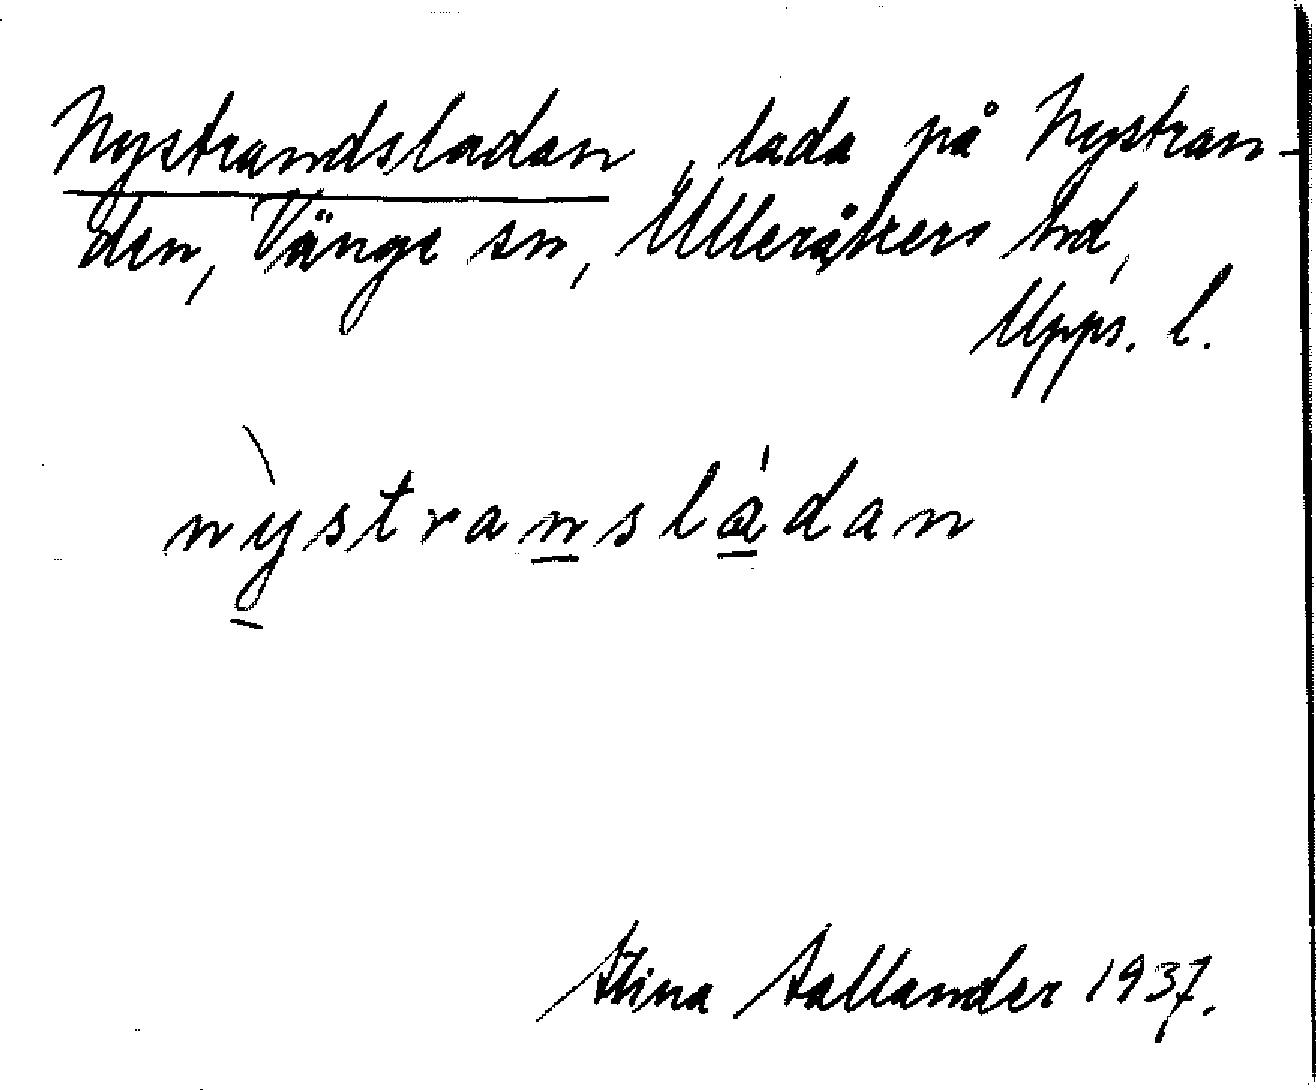 Nystrandsladan, lada på Nystran-
den, Vänge sn, Ulleråkers hd,
Upps. l.
nỳstransládan
Stina Sallander 1937.